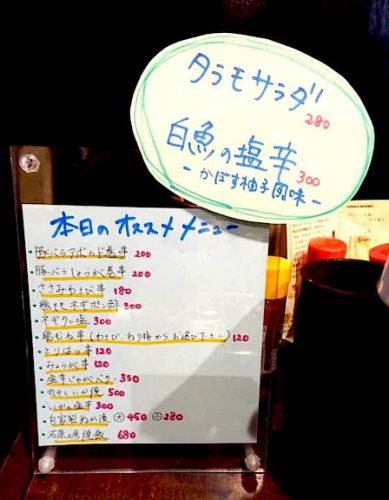 タラモサラダ
280
白魚の塩辛
300
- かぼす柚子風味 -
本日のオススメメニュー
・豚バラアボカド巻串 200
・豚バラしょうが巻串 200
・ささみわさび串 180
・鶏ももネギポン酢 300
・ネギタン塩 300
・鶏むね串(わさび、ねり梅からお選び下さい) 120
・とりはつ串 120
・みょうが串 120
・塩辛じゃがバター 350
・丸干しいか焼 500
・いかの塩辛 300
・自家製ぬか漬 大 450 小 280
・石原工房焼飯 680